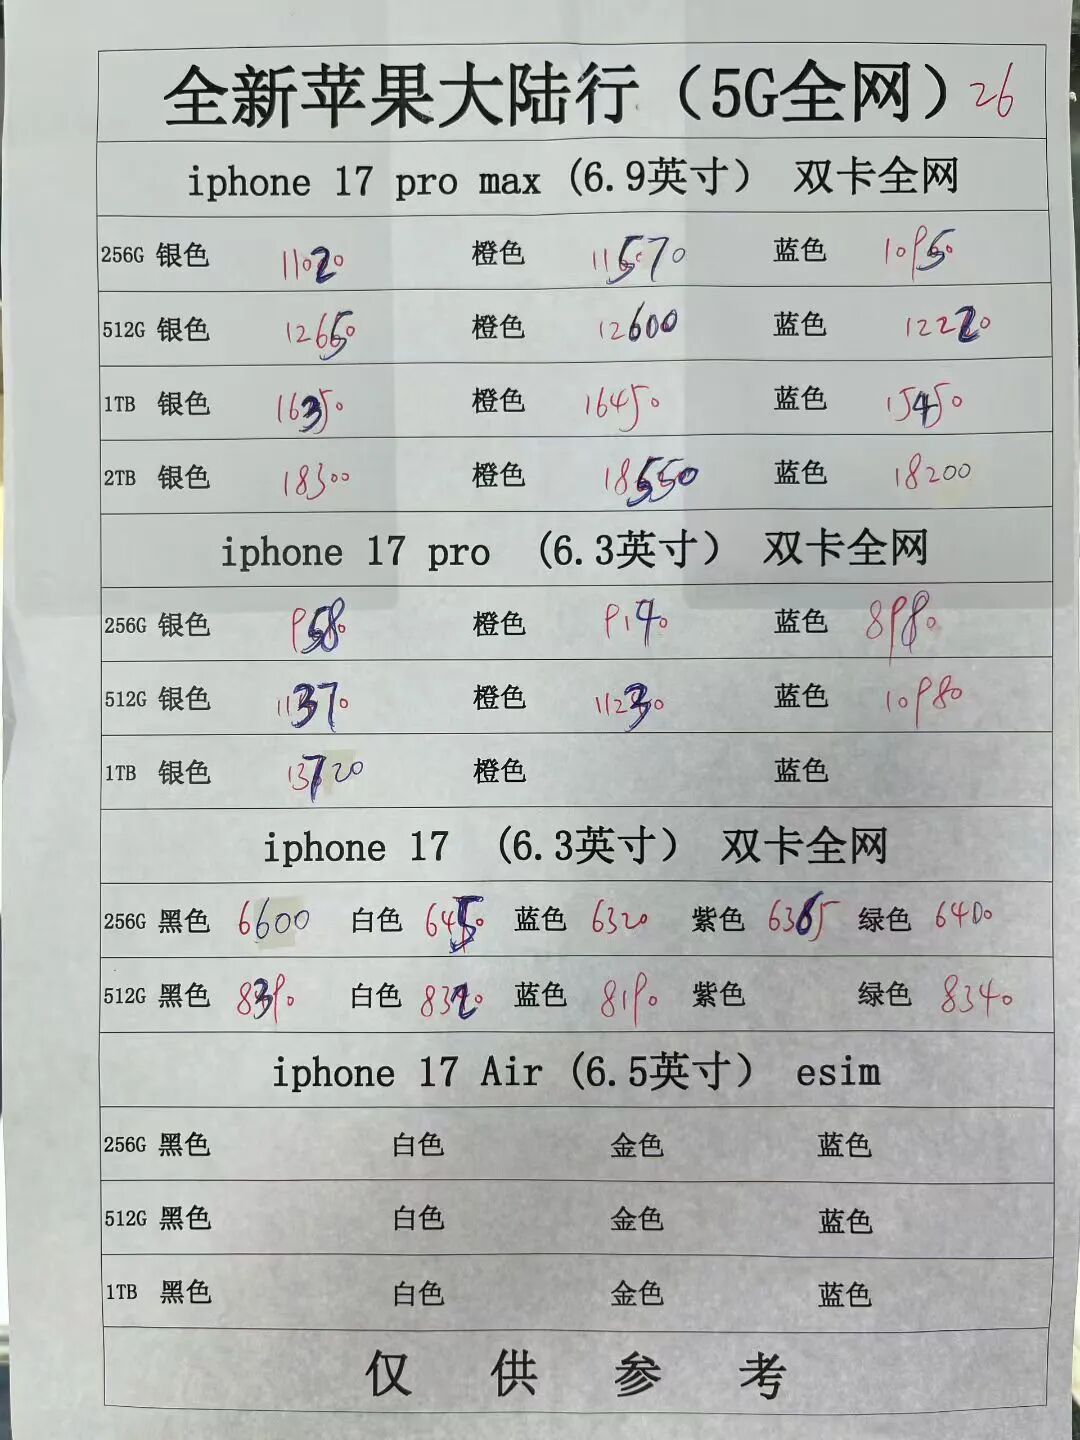 全新苹果大陆行（5G全网）26
iphone 17 pro max (6.9英寸） 双卡全网
256G 银色 11020 橙色 11570 蓝色 10950
512G 银色 12650 橙色 12600 蓝色 12220
1TB 银色 16350 橙色 16450 蓝色 15450
2TB 银色 18300 橙色 18550 蓝色 18200
iphone 17 pro （6.3英寸） 双卡全网
256G 银色 橙色 9140 蓝色 8980
512G 银色 11370 橙色 11230 蓝色 10980
1TB 银色 13720 橙色 蓝色
iphone 17 （6.3英寸） 双卡全网
256G 黑色 6600 白色 6450 蓝色 6320 紫色 6365 绿色 6400
512G 黑色 8390 白色 8320 蓝色 8190 紫色 绿色 8340
iphone 17 Air (6.5英寸） esim
256G 黑色 白色 金色 蓝色
512G 黑色 白色 金色 蓝色
1TB 黑色 白色 金色 蓝色
仅 供 参 考